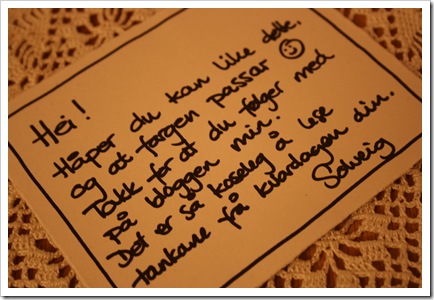 Hei!
Håper du kan like dette.
og at fargen passar ☺
Takk for at du følger med
på bloggen min.
Det er så koseleg å lese
tankane frå kvardagen din.
Solveig